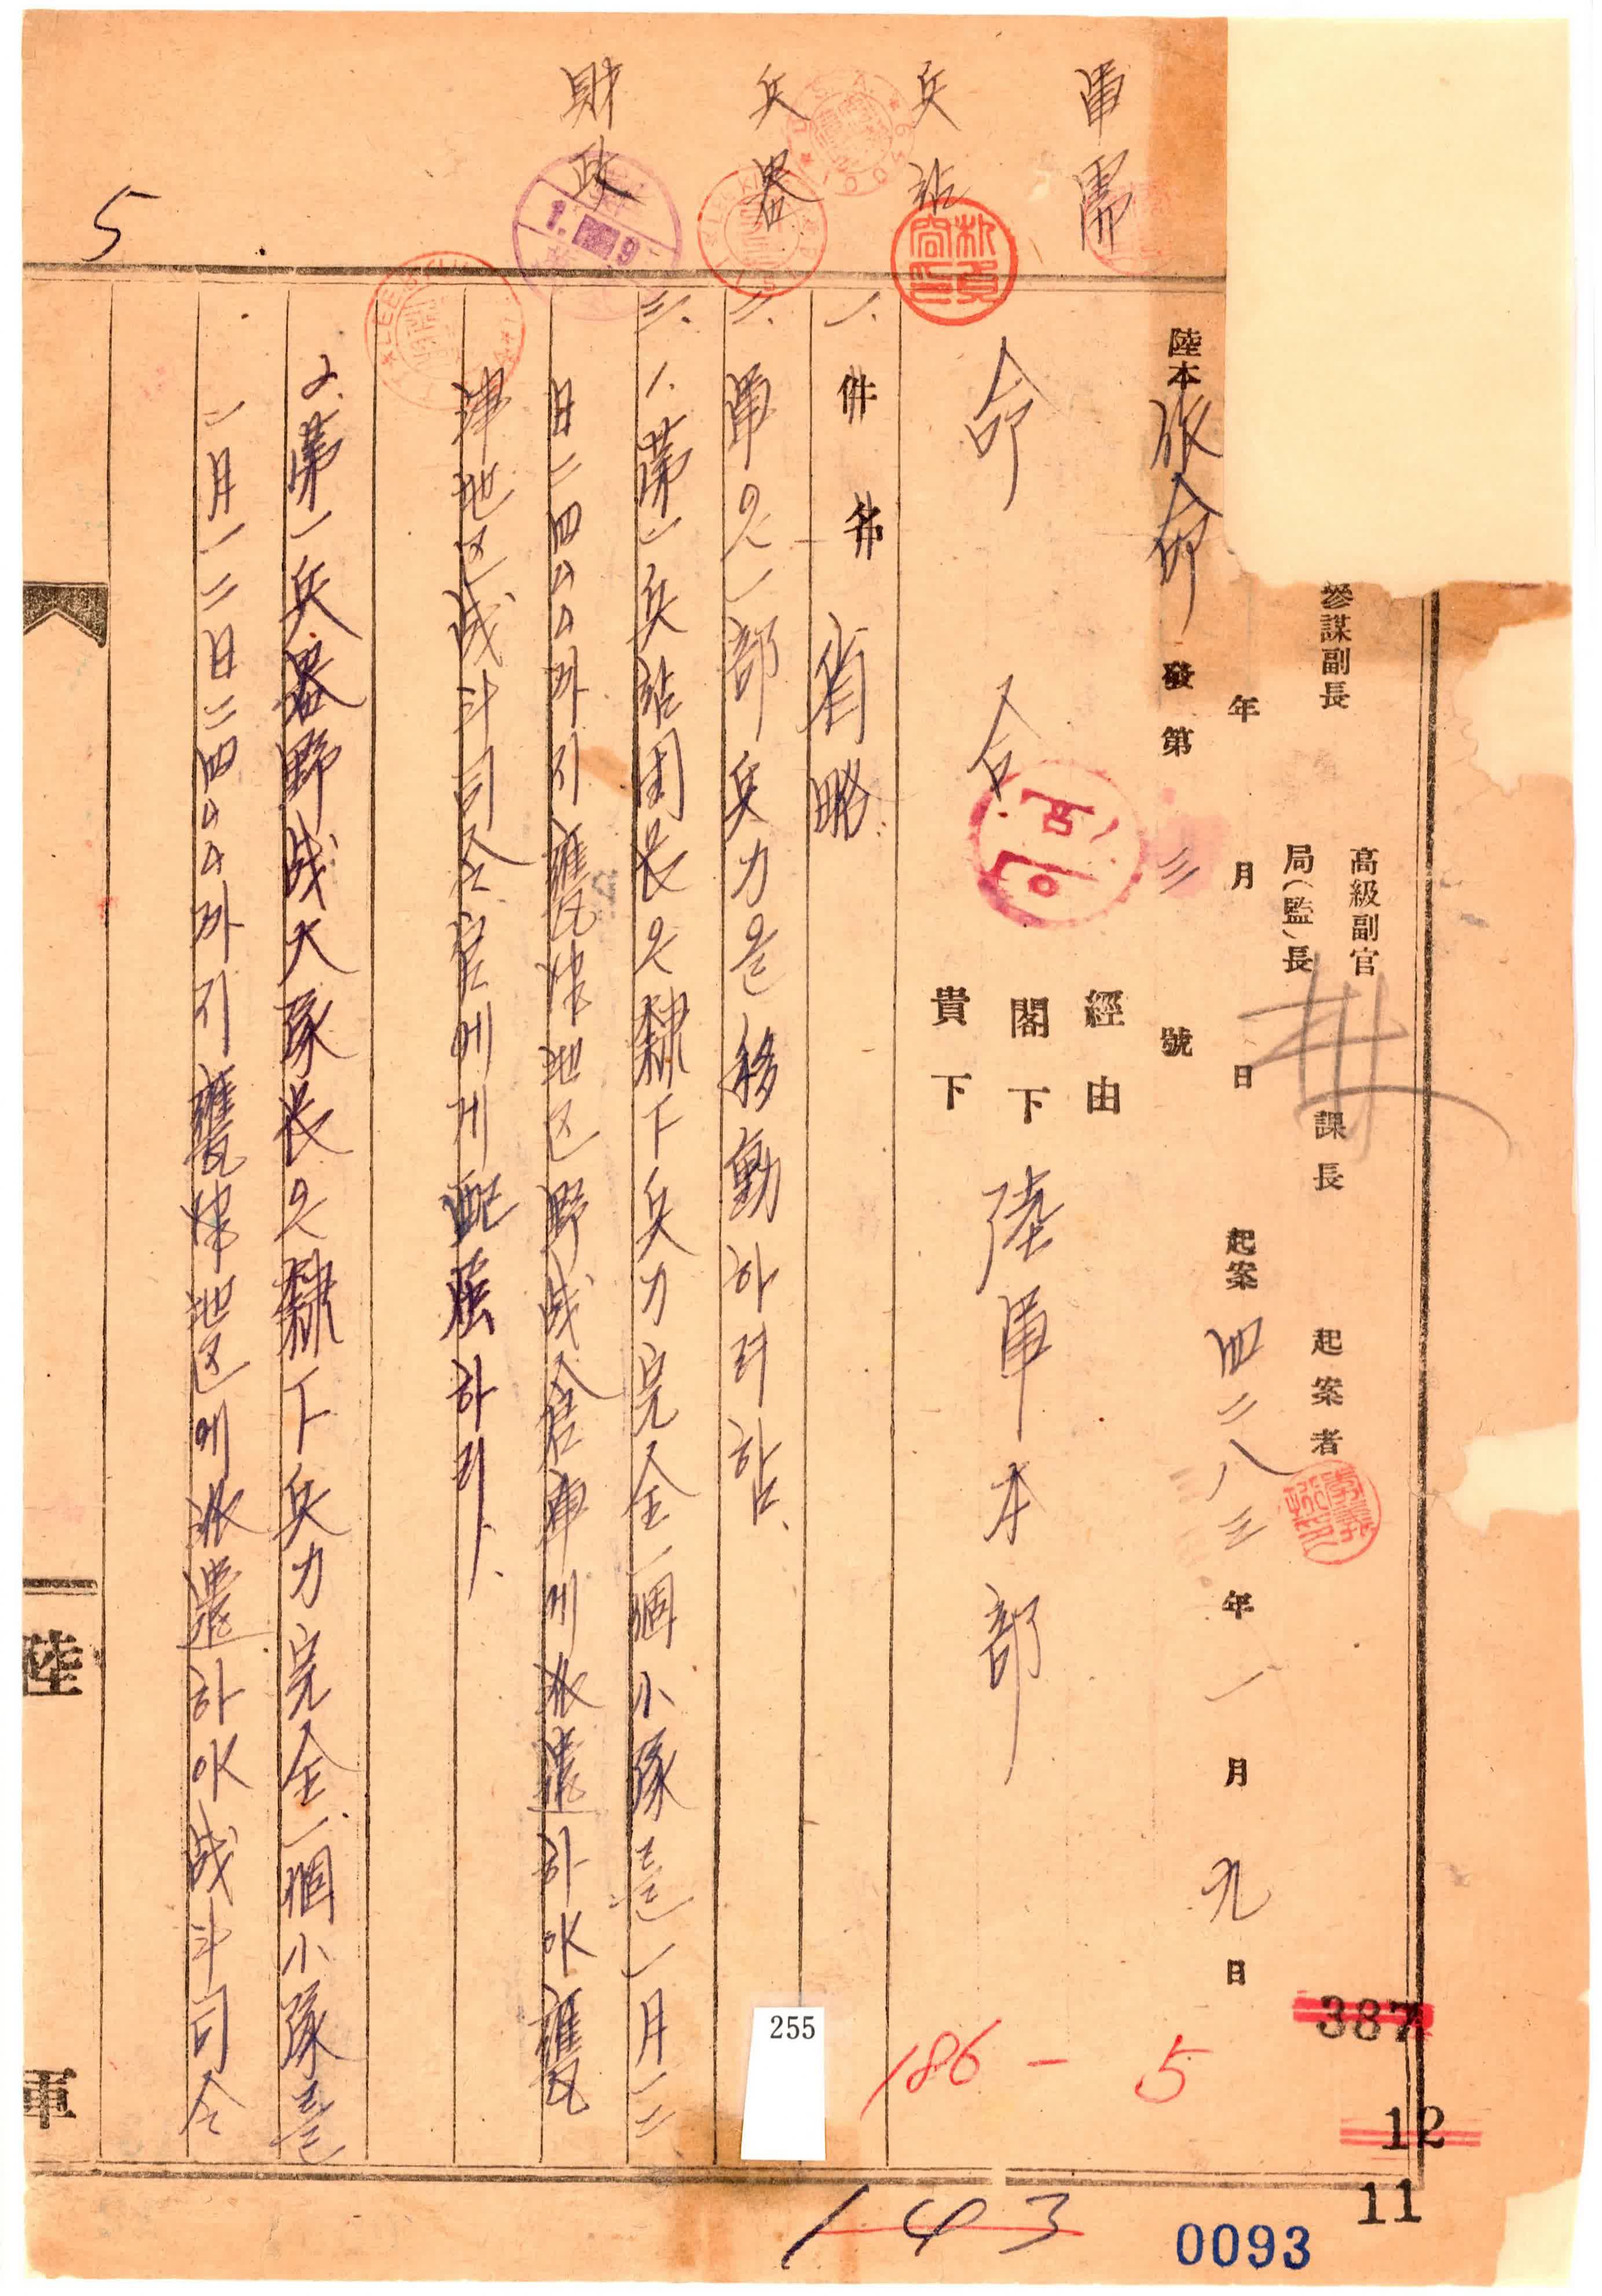 參謀副長
高級副官
局(監)長
課長
起案者
年 月 日
起案 四二八三年一月九日
陸本 作命 發第 三 號
經由
閣下
貴下
命令
陸軍本部
軍需
兵站
兵器
財政
5
一、件名 省略
二、軍은 一部兵力을 移動하려함.
三、1.第一兵站団長은 隸下兵力完全一個小隊를 一月一二
日二四△△까지 甕津地区野戰倉庫에 派遣하야 甕
津地区战斗司令官에게 配屬하라.
2.第一兵器野战大隊長은 隸下兵力完全一個小隊를
一月一二日二四△△까지 甕津地区에 派遣하야 战斗司令
陸
軍
1. 9
255
186-5
387
12
11
143
0093